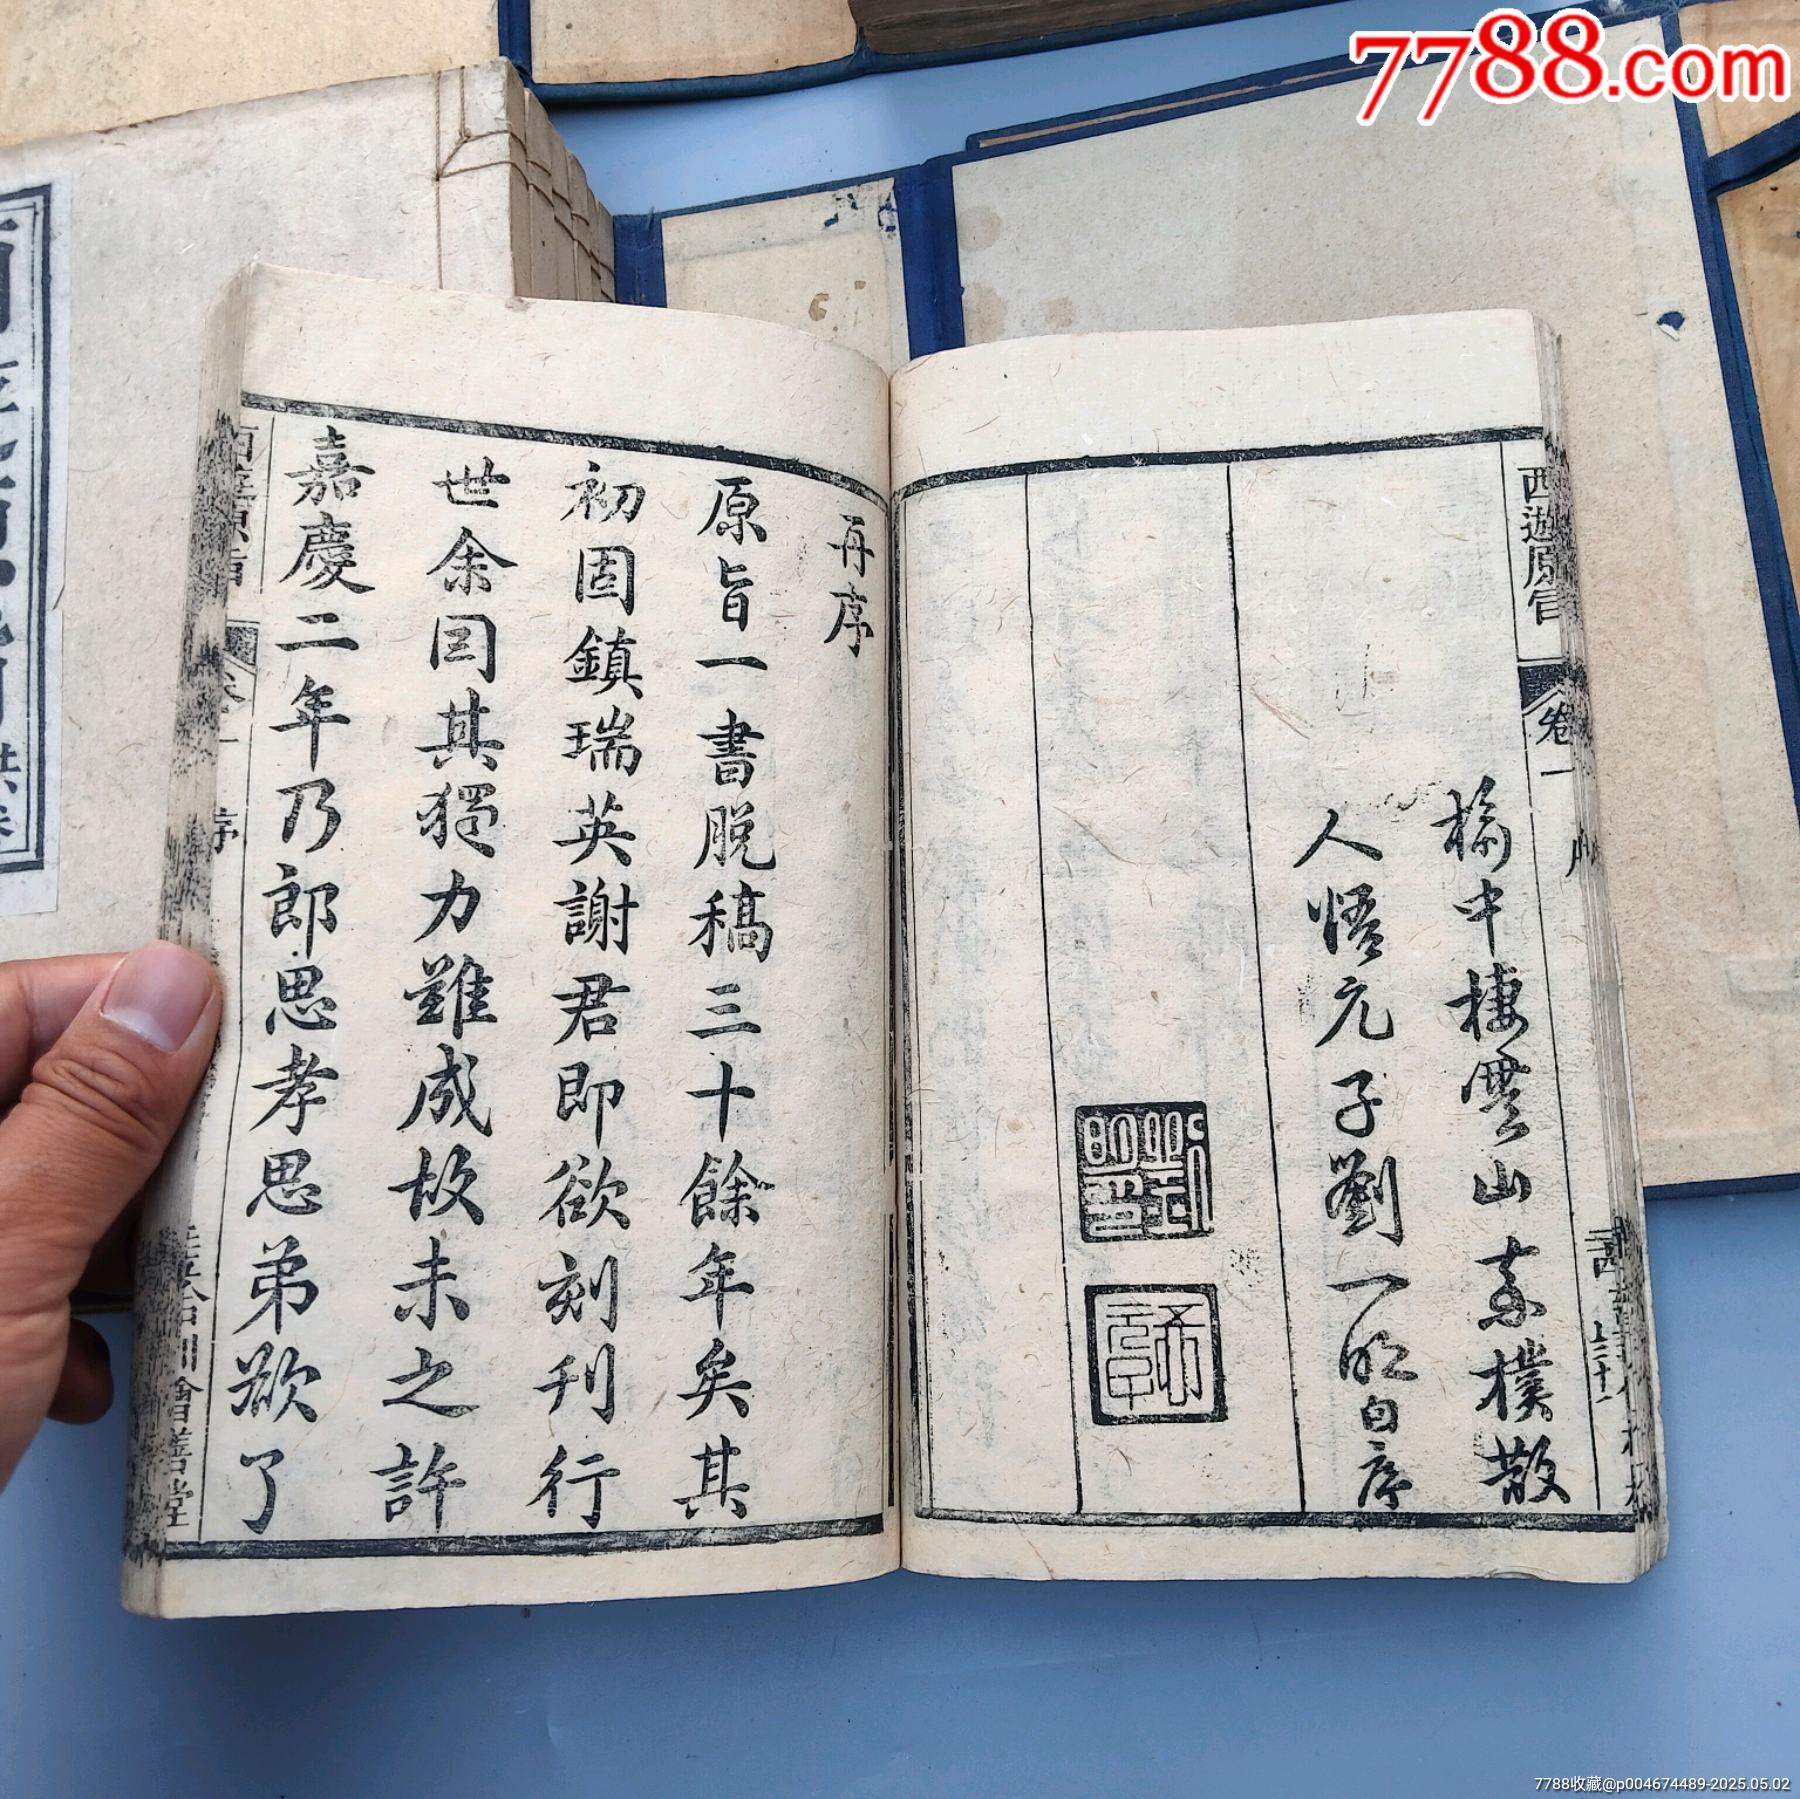 7788.com
西遊原旨 卷一
榆中棲雲山素樸散
人悟元子劉一明自序
再序
原旨一書脫稿三十餘年矣其
初固鎮瑞英謝君即欲刻刊行
世余囙其獨力難成故未之許
嘉慶二年乃郎思孝思弟欲了
序
會善堂
7788收藏@p004674489-2025.05.02